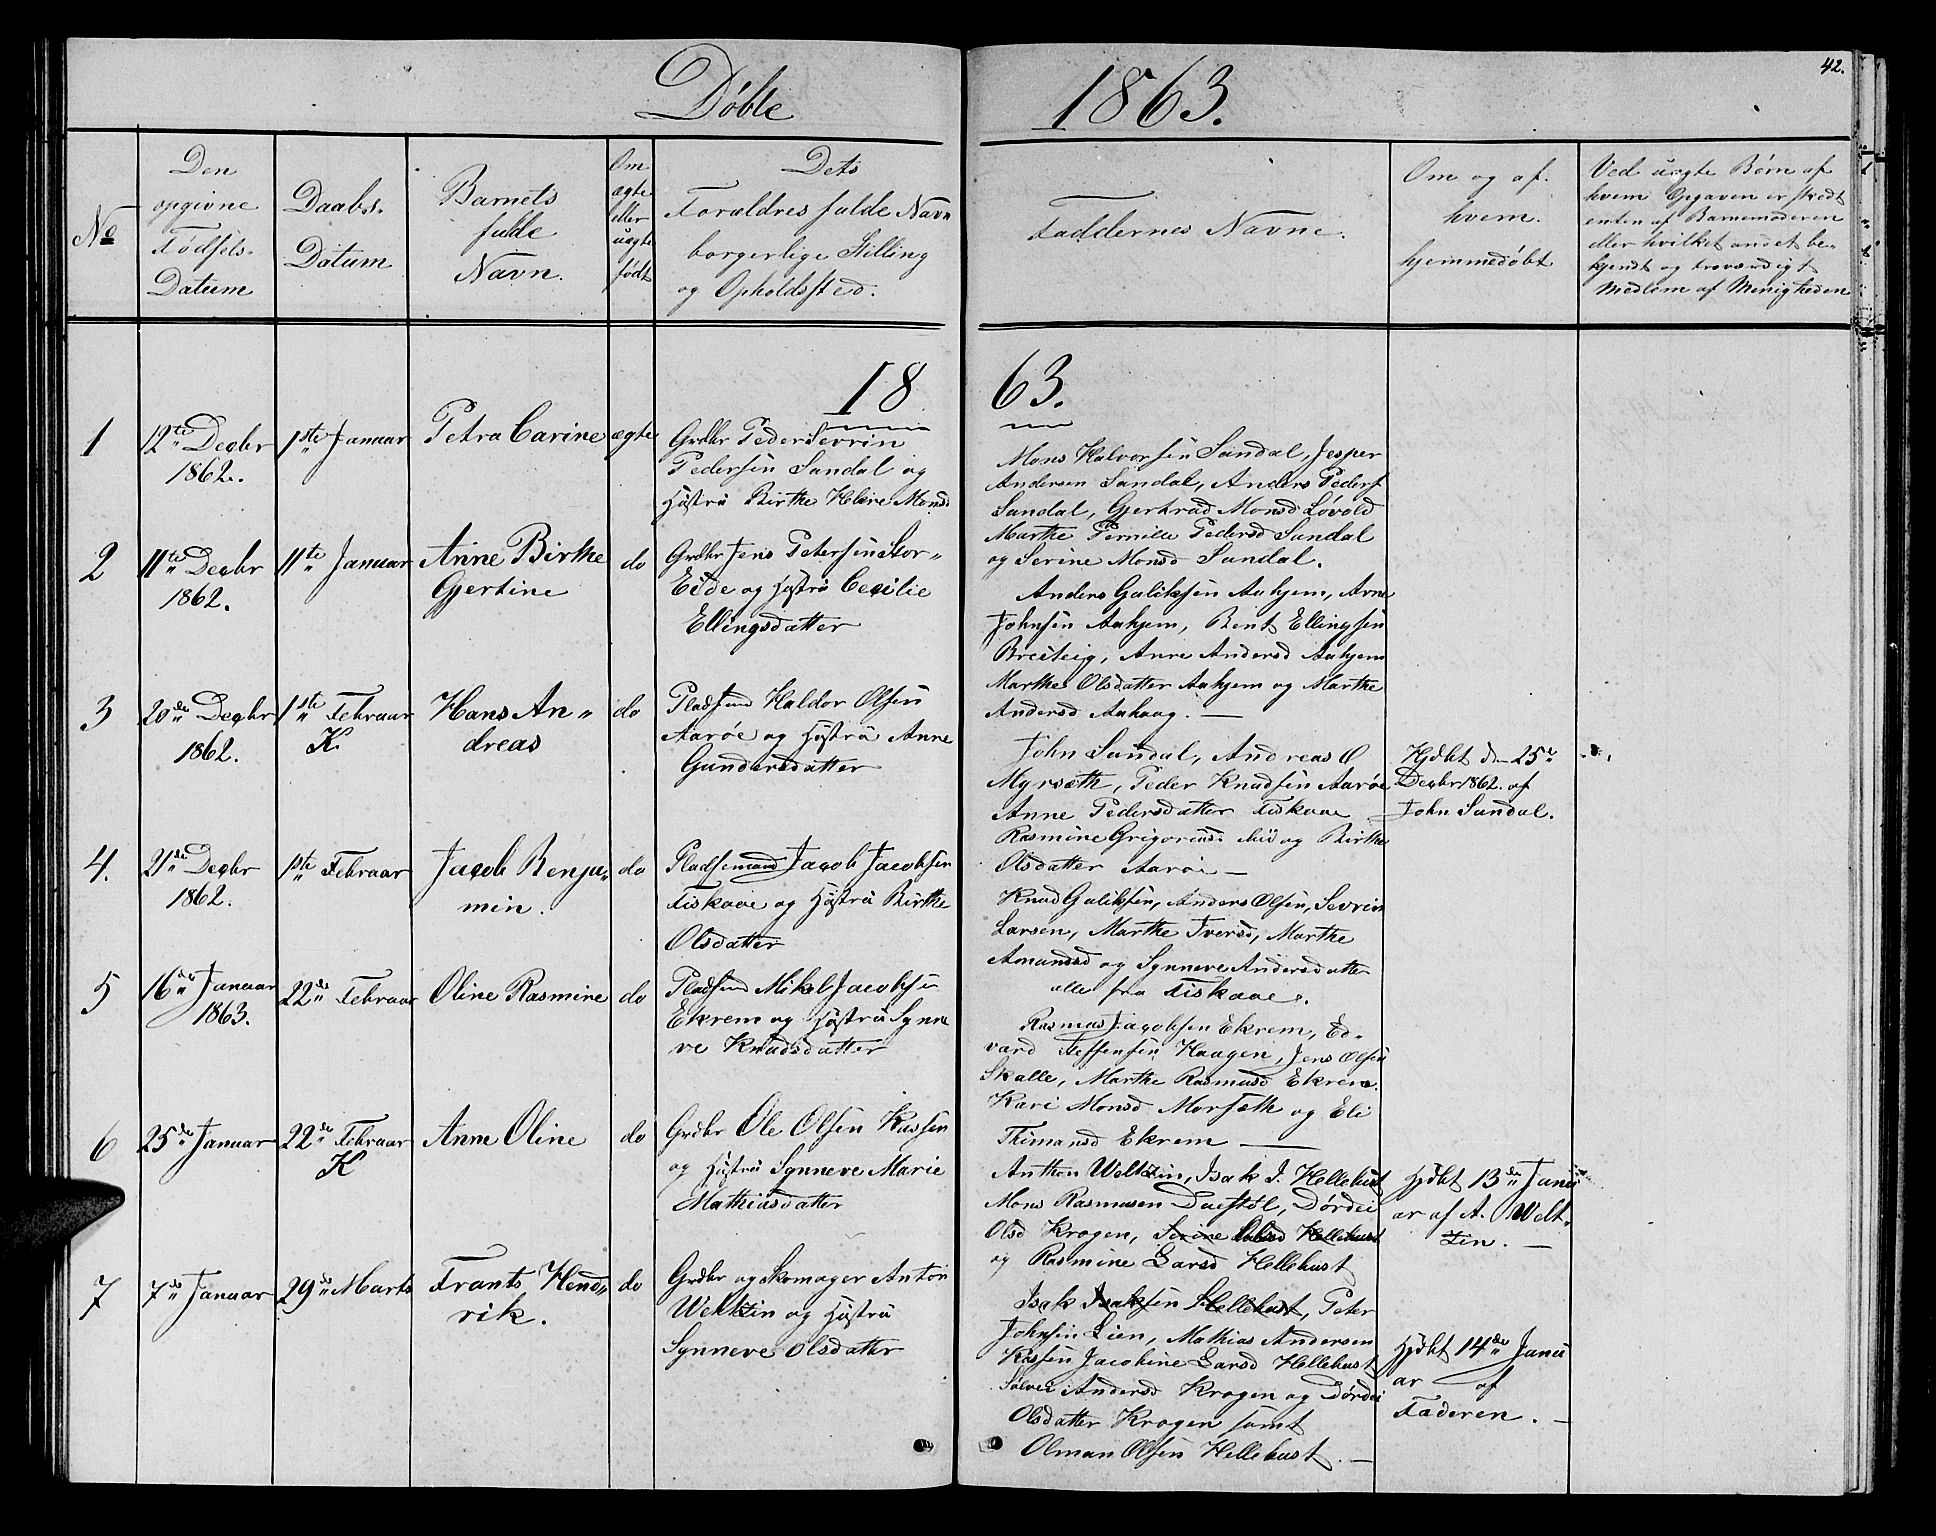 Døbte 1863.
42.
No
Den
opgivne
Fødsels-
Datum
Daabs-
Datum
Barnets
fulde
Navn.
Om
ægte
eller
uægte
født
Dets
Forældres fulde Navn
borgerlige Stilling
og Opholdssted.
Faddernes Navne.
Om og af
hvem
hjemmedøbt
Ved uægte Børn af
hvem Opgaven er skedt
enten af Barnemoderen
eller hvilket andet be-
kjendt og troværdigt
Medlem af Menigheden
18 63.
1
12te Decbr
1862.
1ste Januar
Petra Carine
ægte
Grdbr Peder Sevrin
Pedersen Sandal og
Hustru Birthe Helene Monsd
Mons Halvorsen Sandal, Jesper
Andersen Sandal, Anders Peders
Sandal, Gjertrud Monsd Løvold
Marthe Pernille Pedersd Sandal
og Serine Monsd Sandal.
2
11te Decbr
1862.
11te Januar
Anne Birthe
Gjertine
do
Grdbr Jens Petersen Stor-
Eide og Hustru Cecilie
Ellingsdatter
Anders Galiksen Aahjem, Arne
Johnsen Aahjem, Bent Ellingsen
Breiteig, Anne Andersd Aahjem
Marthe Olsdatter Aahjem og Marthe
Andersd Aahaag. —
3
20de Decbr
1862.
1ste Februar
K.
Hans An-
dreas
do
Pladsmd Haldor Olsen
Aarøe og Hustru Anne
Gundersdatter
John Sandal, Andreas O
Myrsæth, Peder Knudsen Aarøe
Anne Pedersdatter Fiskaae
Rasmine Grigoriusd Eid og Birthe
Olsdatter Aarøe —
Hjdbt den 25de
Decbr 1862. af
John Sandal.
4.
21de Decbr
1862.
1ste Februar
Jacob Benja-
min.
do
Pladsemand Jacob Jacobsen
Fiskaae og Hustru Birthe
Olsdatter
Knud Galiksen, Anders Olsen, Sevrin
Larsen, Marthe Iversd, Marthe
Amundsd og Synneve Andersdatter
alle fra Fiskaae.
5
16de Januar
1863.
22de Februar
Oline Rasmine
do
Pladsmd Mikel Jacobsen
Ekrem og Hustru Synne
ve Knudsdatter
Rasmus Jacobsen Ekrem, Ed-
vard Steffensen Haagen, Jens Olsen
Skalle, Marthe Rasmusd Ekrem.
Kari Monsd Morsæth og Eli
Thimansd Ekrem —
6
25de Januar
22de Februar
K
Anne Oline
do
Grdbr Ole Olsen Kassen
og Hustru Synneve Marie
Mathiasdatter
Anthon Weltzin, Isak I. Hellebust
Mons Rasmusen Duestøl, Dørdei
Olsd Krogen, Serine Olsd Hellebust
og Rasmine Larsd Hellebust
Hjdbt 13de Janu
ar af A. Welt-
zin. —
7
7de Januar
29de Marts
Frants Hend-
rik.
do
Grdbr og Skomager Anton
Weltzin og Hustru
Synneve Olsdatter
Isak Isaksen Hellebust, Peter
Johnsen Lien, Mathias Andersen
Kassen Jacobine Larsd Hellebust
Sølvei Andersd Krogen og Dørdei
Olsdatter Krogen samt
Olman Olsen Hellebust. —
Hjdbt 14de Janu
ar af
Faderen. —